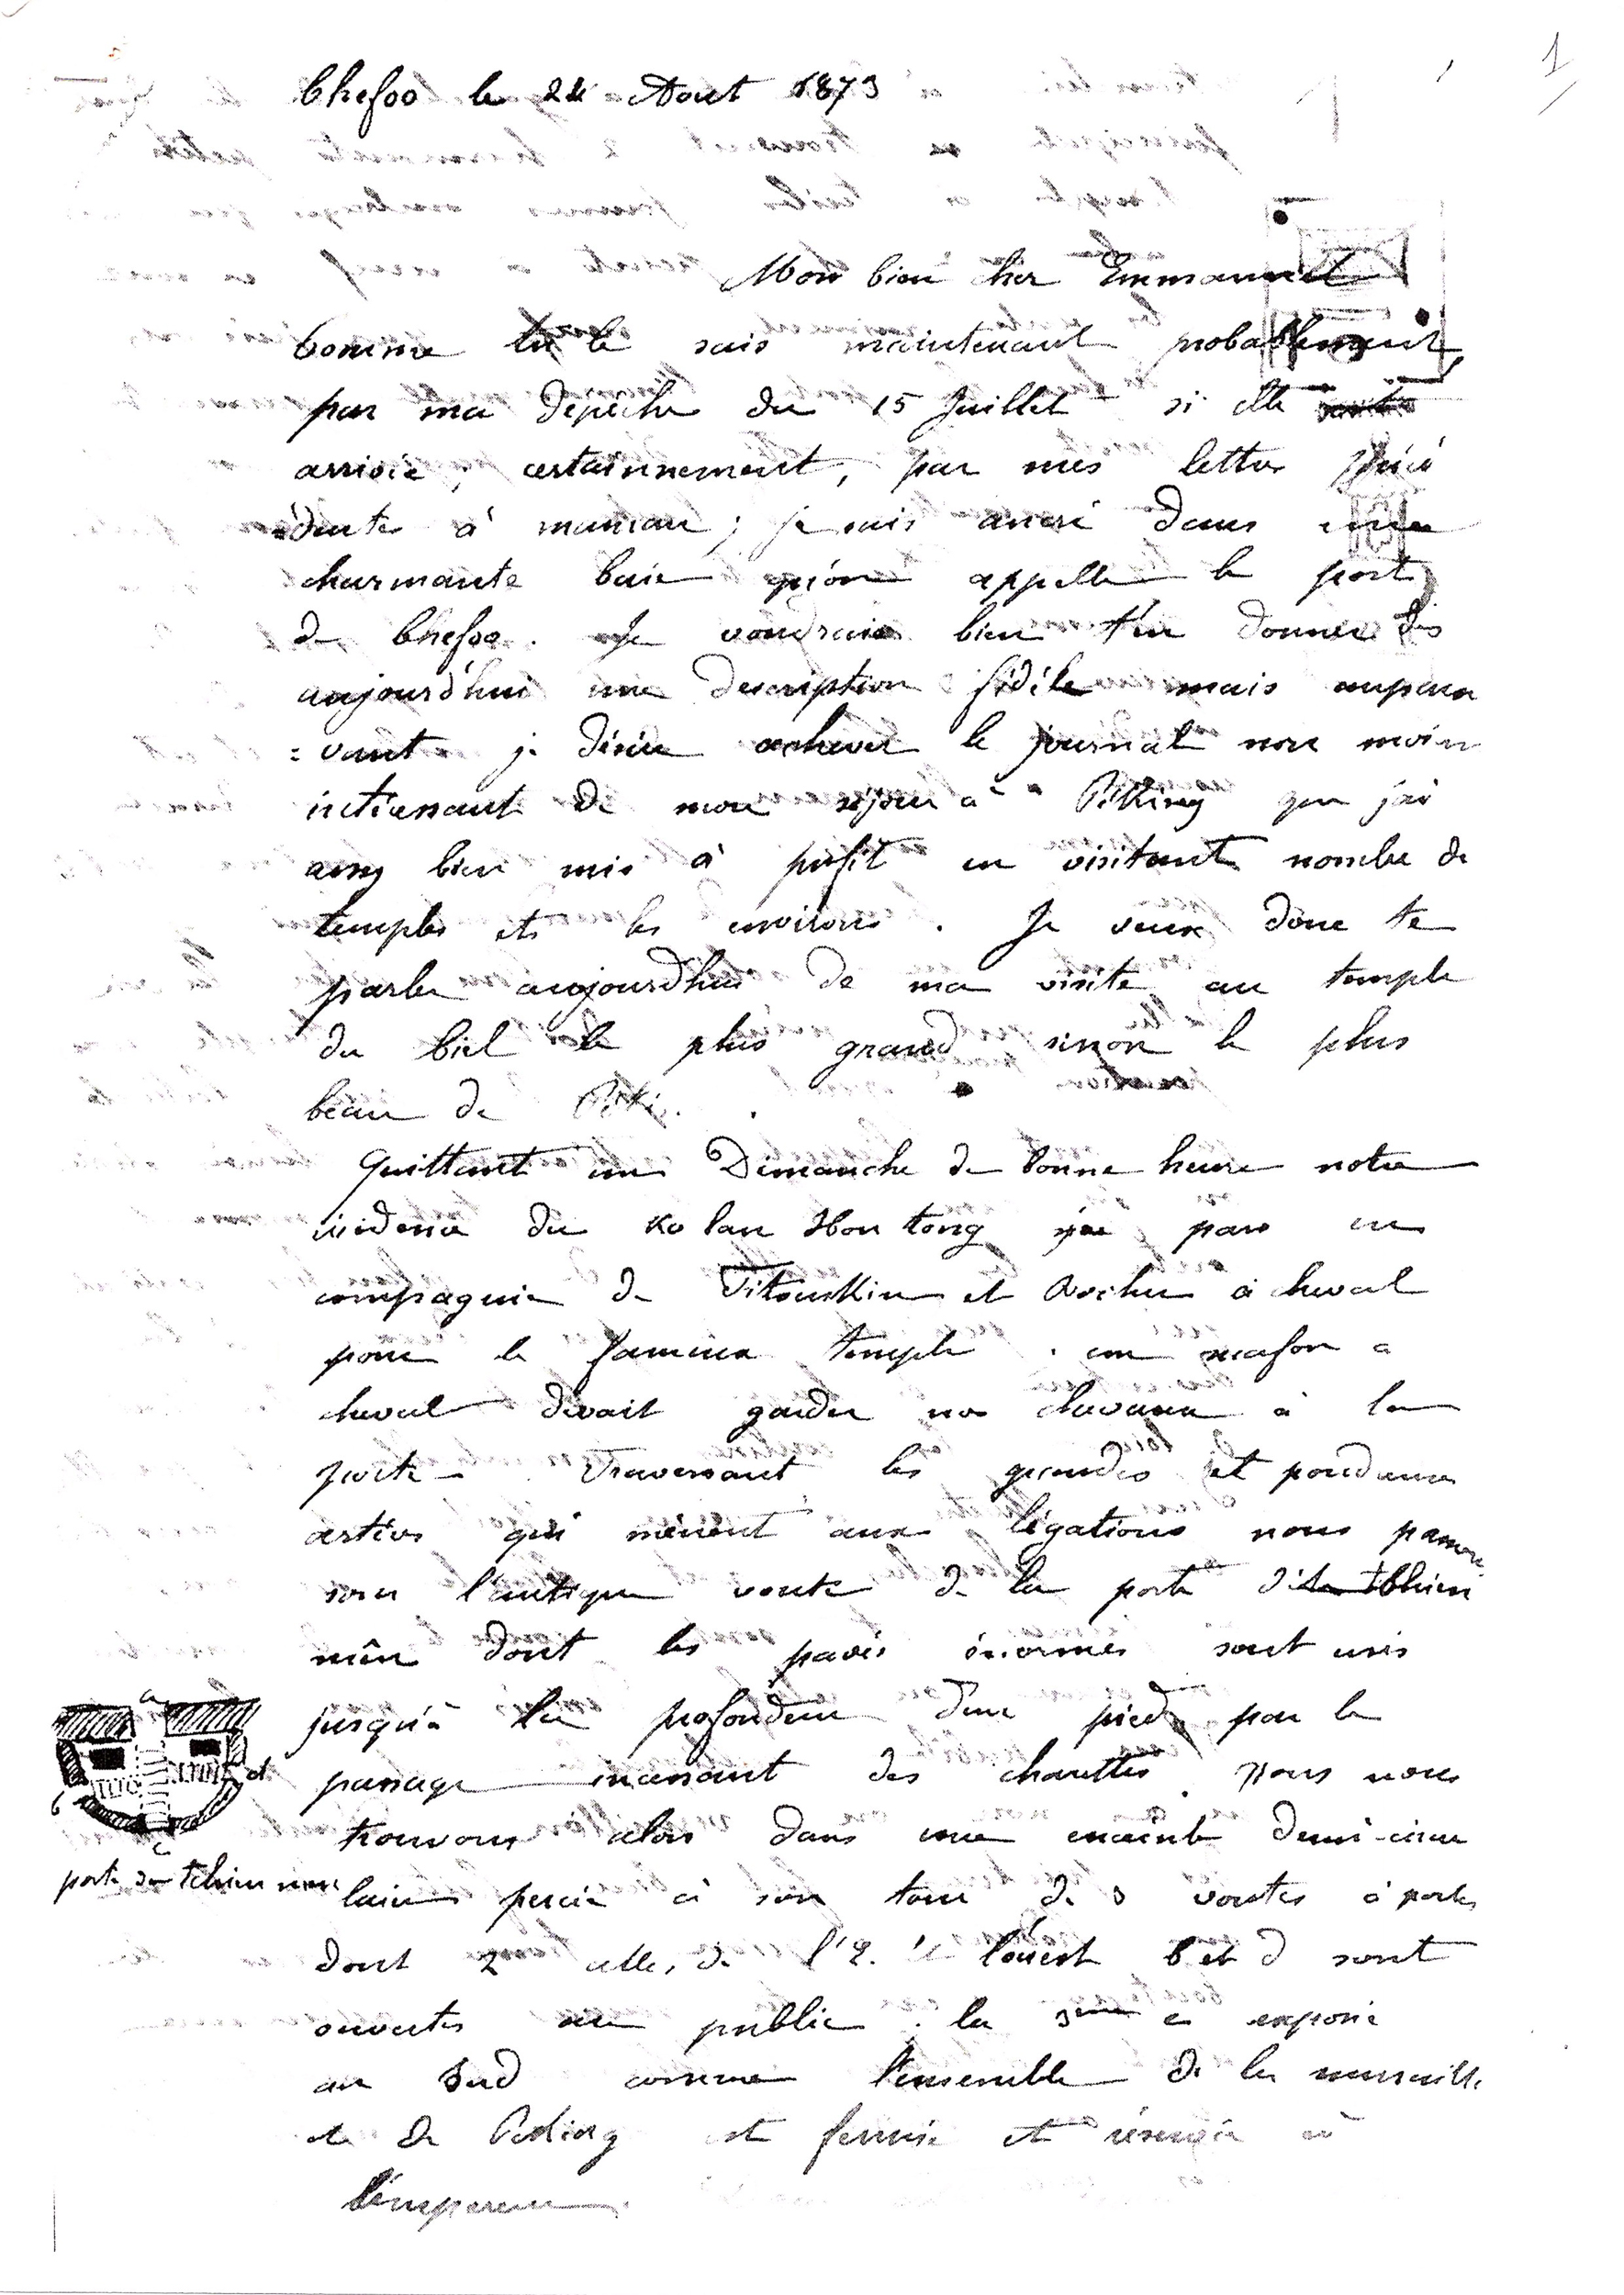 1
Chefoo le 24 Aout 1873
Mon bien cher Emmanuel
Comme tu le sais maintenant probablement,
par ma dépêche du 15 Juillet si elle
arrivée, certainnement, par mes lettres précé
=dentes à maman; je suis ancré dans une
charmante baie qu'on appelle le port
de Chefoo. Je voudrais bien t'en donner dès
aujourd'hui une description fidèle mais aupara
=vant je désire achever le journal non moins
intéressant de mon séjour à Péking que j'ai
assez bien mis à profit en visitant nombre de
temples et les environs. Je veux donc te
parler aujourd'hui de ma visite au temple
du Ciel le plus grand sinon le plus
beau de Péki.
Quittant un Dimanche de bonne heure notre
résidence du Ko lan Hou tong pars en
compagnie de et à cheval
pour le fameux temple. un mafou à
cheval devait garder nos chevaux à la
porte. Traversant les grandes et poudreuses
artères qui mènent aux légations nous passons
sous l'antique voute de la porte dite Tchien
mên dont les pavés énormes sont usés
jusqu'à la profondeur d'un pied par le
passage incessant des charettes. Nous nous
trouvons alors dans une enceinte demi-circu
laire percée à son tour de 3 voutes à portes
dont 2 celles de l'E. et l'ouest b et d sont
ouvertes au public. la 3eme c exposée
au Sud comme l'ensemble de la muraille
de Péking est fermée et réservée à
l'empereur.
a
b
d
c
porte de Tchien men